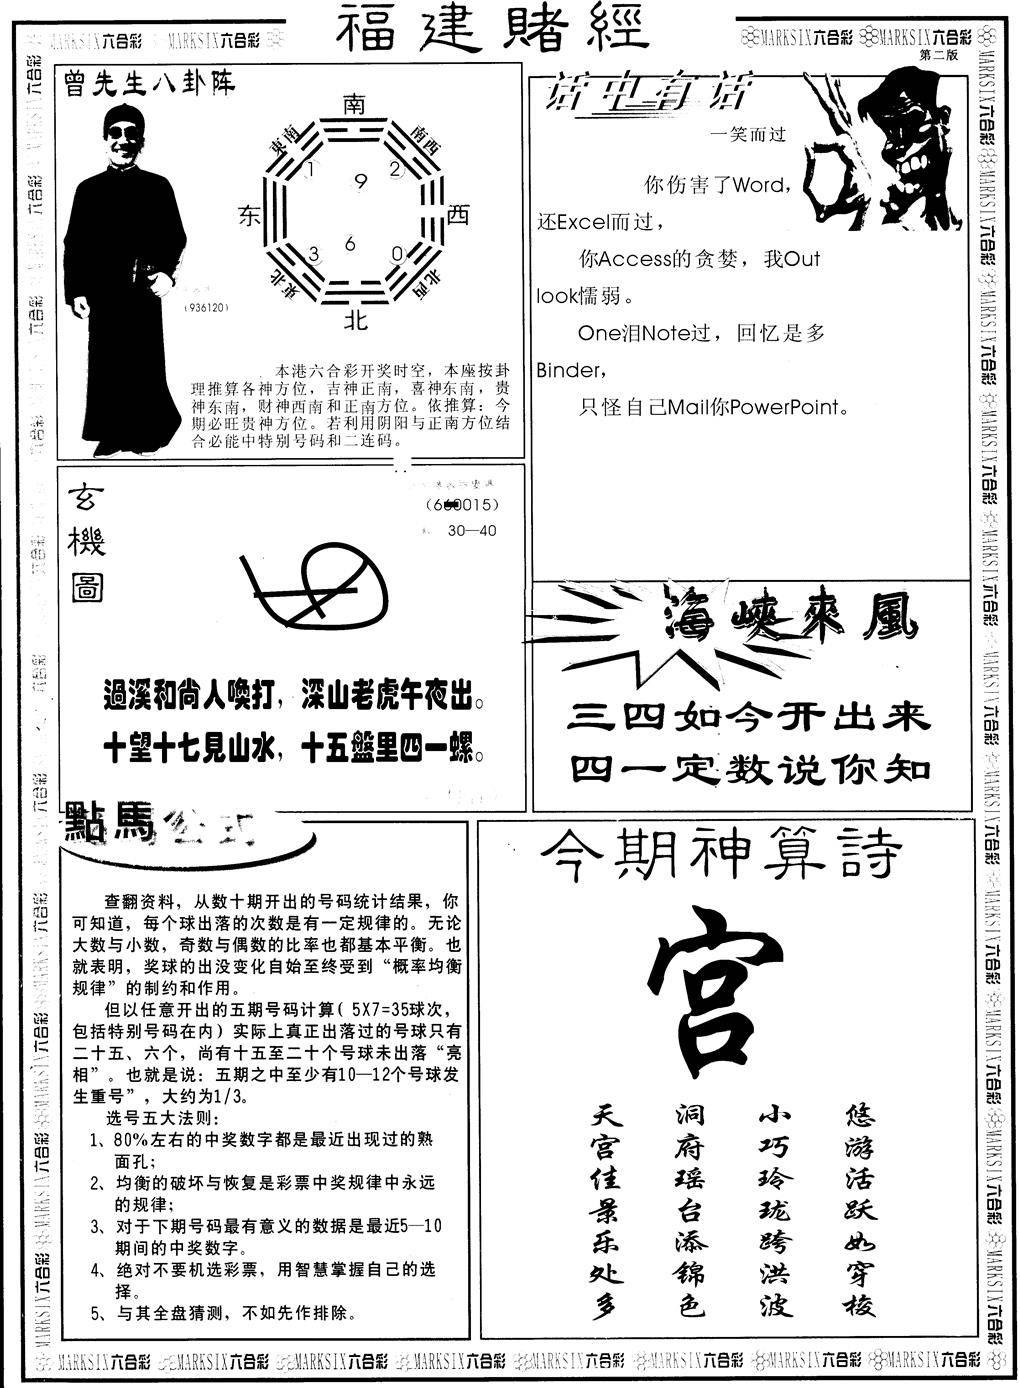 福建賭經
MARKSIX六合彩 MARKSIX六合彩
MARKSIX六合彩 MARKSIX六合彩
第二版
曾先生八卦阵
南
東南
南西
1
9
2
东
西
3
6
0
東北
北西
北
(936120)
本港六合彩开奖时空，本座按卦
理推算各神方位，吉神正南，喜神东南，贵
神东南，财神西南和正南方位。依推算：今
期必旺贵神方位。若利用阴阳与正南方位结
合必能中特别号码和二连码。
话中有话
一笑而过
你伤害了Word，
还Excel而过，
你Access的贪婪，我Out
look懦弱。
One泪Note过，回忆是多
Binder，
只怪自己Mail你PowerPoint。
玄機圖
30—40
過溪和尚人喚打，深山老虎午夜出。
十望十七見山水，十五盤里四一螺。
海峽來風
三四如今开出来
四一定数说你知
點馬公式
查翻资料，从数十期开出的号码统计结果，你
可知道，每个球出落的次数是有一定规律的。无论
大数与小数，奇数与偶数的比率也都基本平衡。也
就表明，奖球的出没变化自始至终受到“概率均衡
规律”的制约和作用。
但以任意开出的五期号码计算（5X7=35球次，
包括特别号码在内）实际上真正出落过的号球只有
二十五、六个，尚有十五至二十个号球未出落“亮
相”。也就是说：五期之中至少有10—12个号球发
生重号”，大约为1/3。
选号五大法则：
1、80%左右的中奖数字都是最近出现过的熟
面孔；
2、均衡的破坏与恢复是彩票中奖规律中永远
的规律；
3、对于下期号码最有意义的数据是最近5—10
期间的中奖数字。
4、绝对不要机选彩票，用智慧掌握自己的选
择。
5、与其全盘猜测，不如先作排除。
今期神算詩
宫
天宫佳景乐处多
洞府瑶台添锦色
小巧玲珑跨洪波
悠游活跃如穿梭
MARKSIX六合彩 MARKSIX六合彩 MARKSIX六合彩 MARKSIX六合彩 MARKSIX六合彩 MARKSIX六合彩 MARKSIX六合彩 MARKSIX六合彩